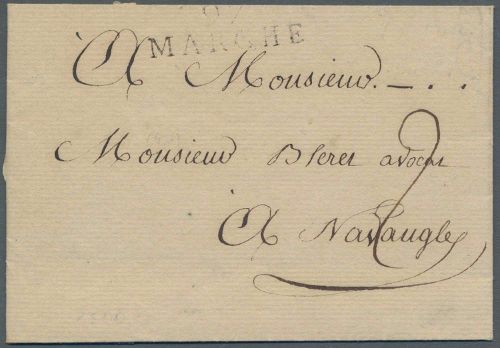 97
MARCHE
A Monsieur. _ . .
Monsieur Bleret avocat
2
A Navaugle